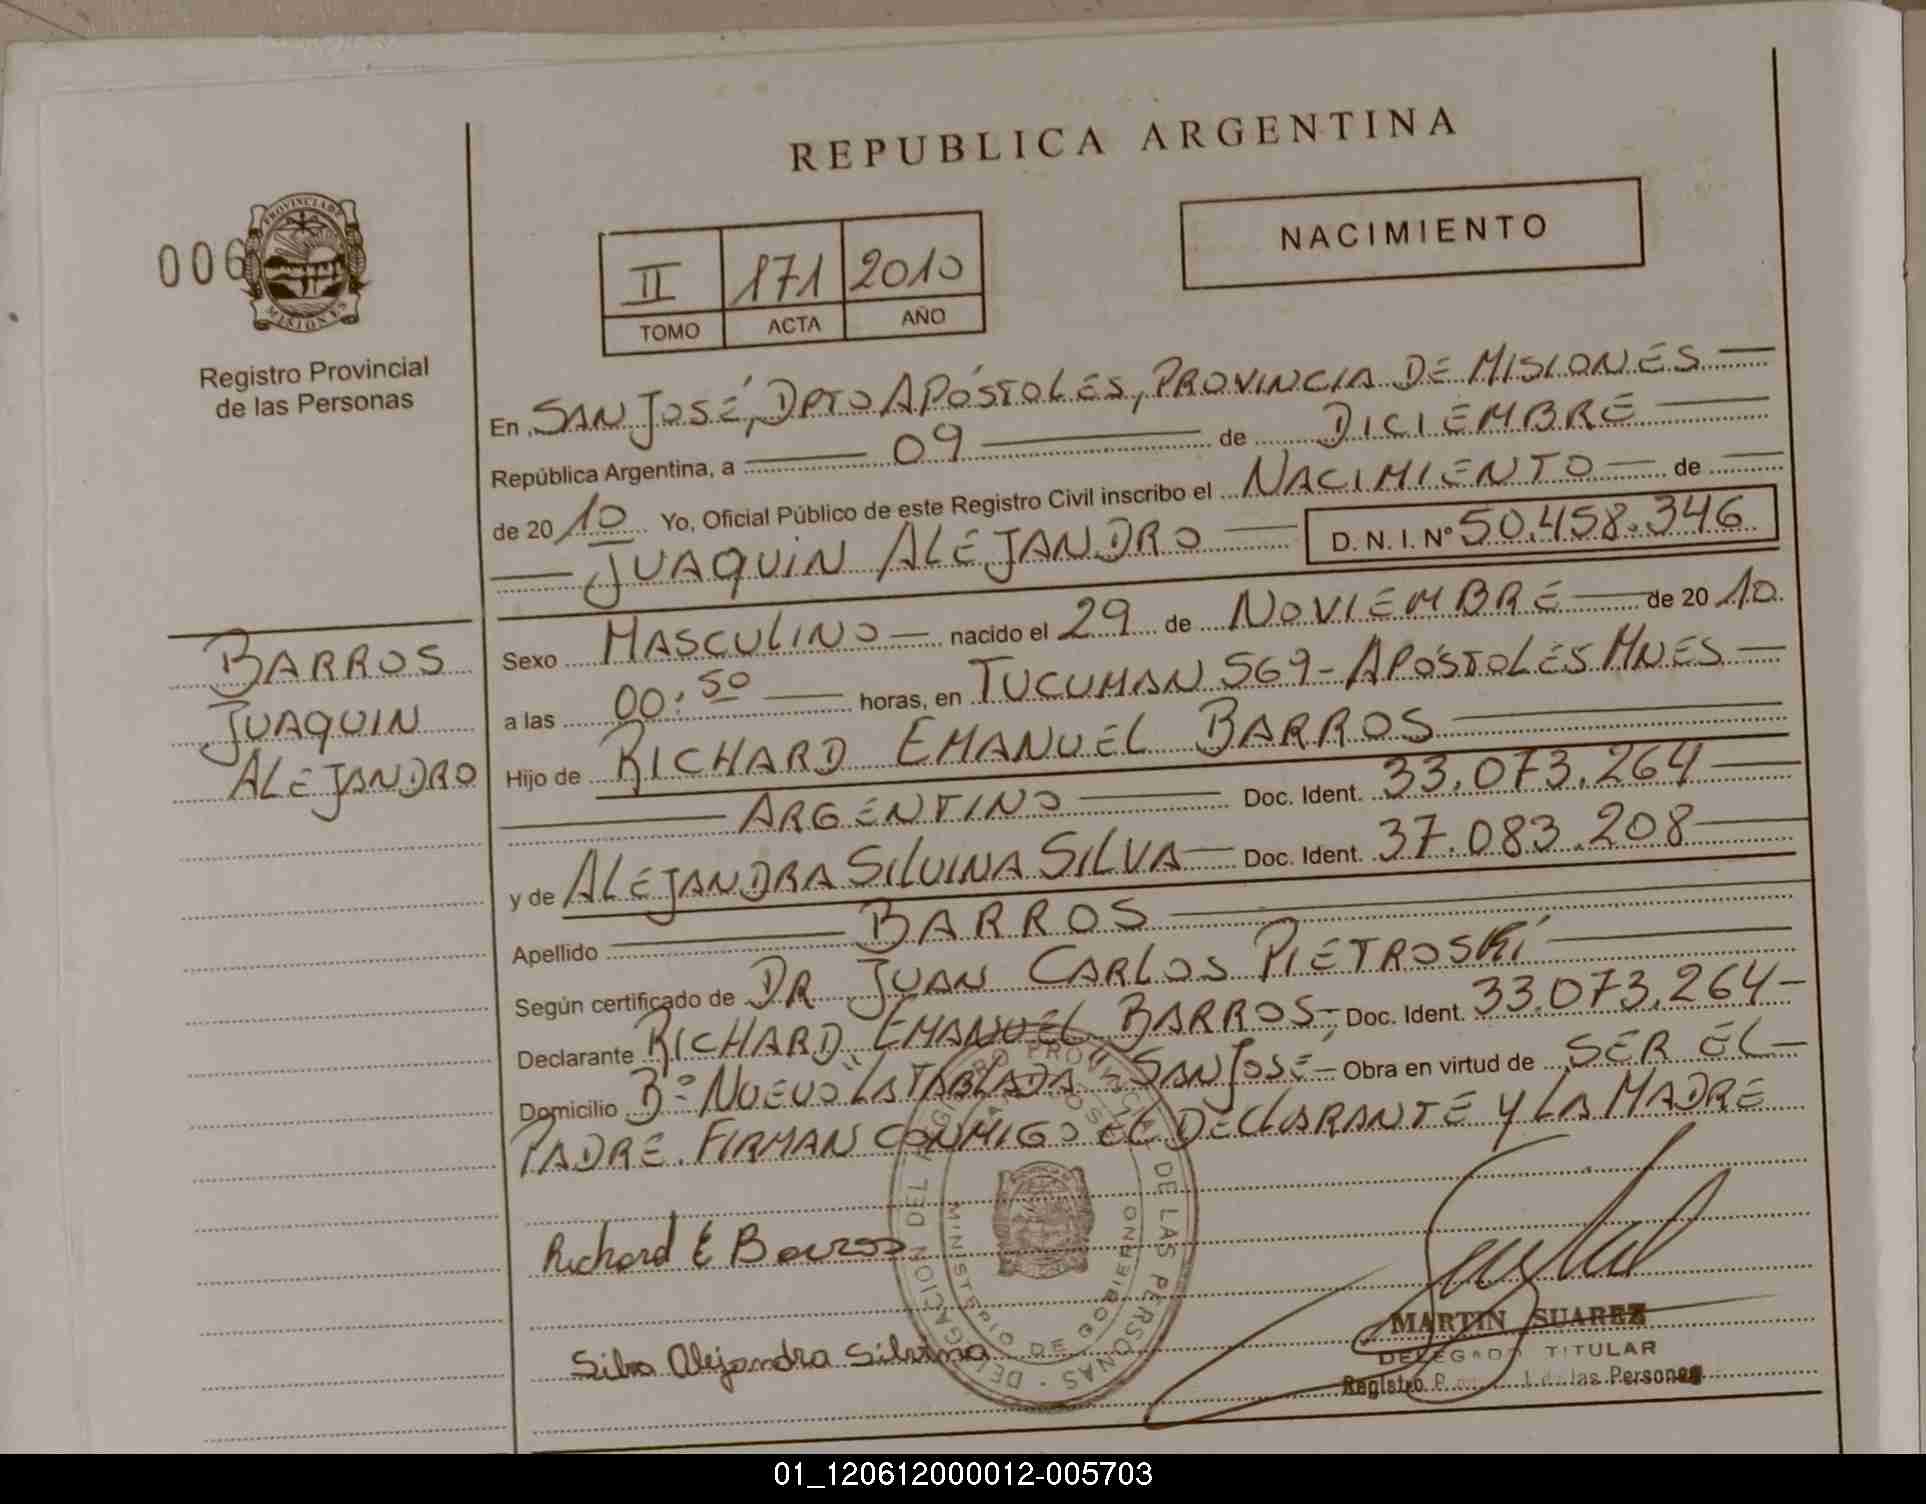 REPUBLICA ARGENTINA
006
PROVINCIA DE
MISIONES
Registro Provincial
de las Personas
II 171 2010
TOMO ACTA AÑO
NACIMIENTO
En SAN JOSÉ, DPTO APÓSTOLES, PROVINCIA DE MISIONES
República Argentina, a 09 de DICIEMBRE
de 2010 Yo, Oficial Público de este Registro Civil inscribo el NACIMIENTO de
JUAQUIN ALEJANDRO D. N. I. Nº 50.458.346
BARROS
JUAQUIN
ALEJANDRO
Sexo MASCULINO nacido el 29 de NOVIEMBRE de 2010
a las 00:50 horas, en TUCUMAN 569 - APÓSTOLES MNES
Hijo de RICHARD EMANUEL BARROS
ARGENTINO Doc. Ident. 33.073.264
y de ALEJANDRA SILVINA SILVA Doc. Ident. 37.083.208
Apellido BARROS
Según certificado de DR JUAN CARLOS PIETROSKI
Declarante RICHARD EMANUEL BARROS Doc. Ident. 33.073.264
Domicilio Bº NUEVO "LA TABLADA" SAN JOSÉ Obra en virtud de SER EL
PADRE. FIRMAN CONMIGO EL DECLARANTE Y LA MADRE
Richard E Barros
Silva Alejandra Silvina
DELEGACION DEL REGISTRO PROVINCIAL DE LAS PERSONAS
MINISTERIO DE GOBIERNO
MARTIN SUAREZ
DELEGADO TITULAR
Registro de las Personas
01_120612000012-005703